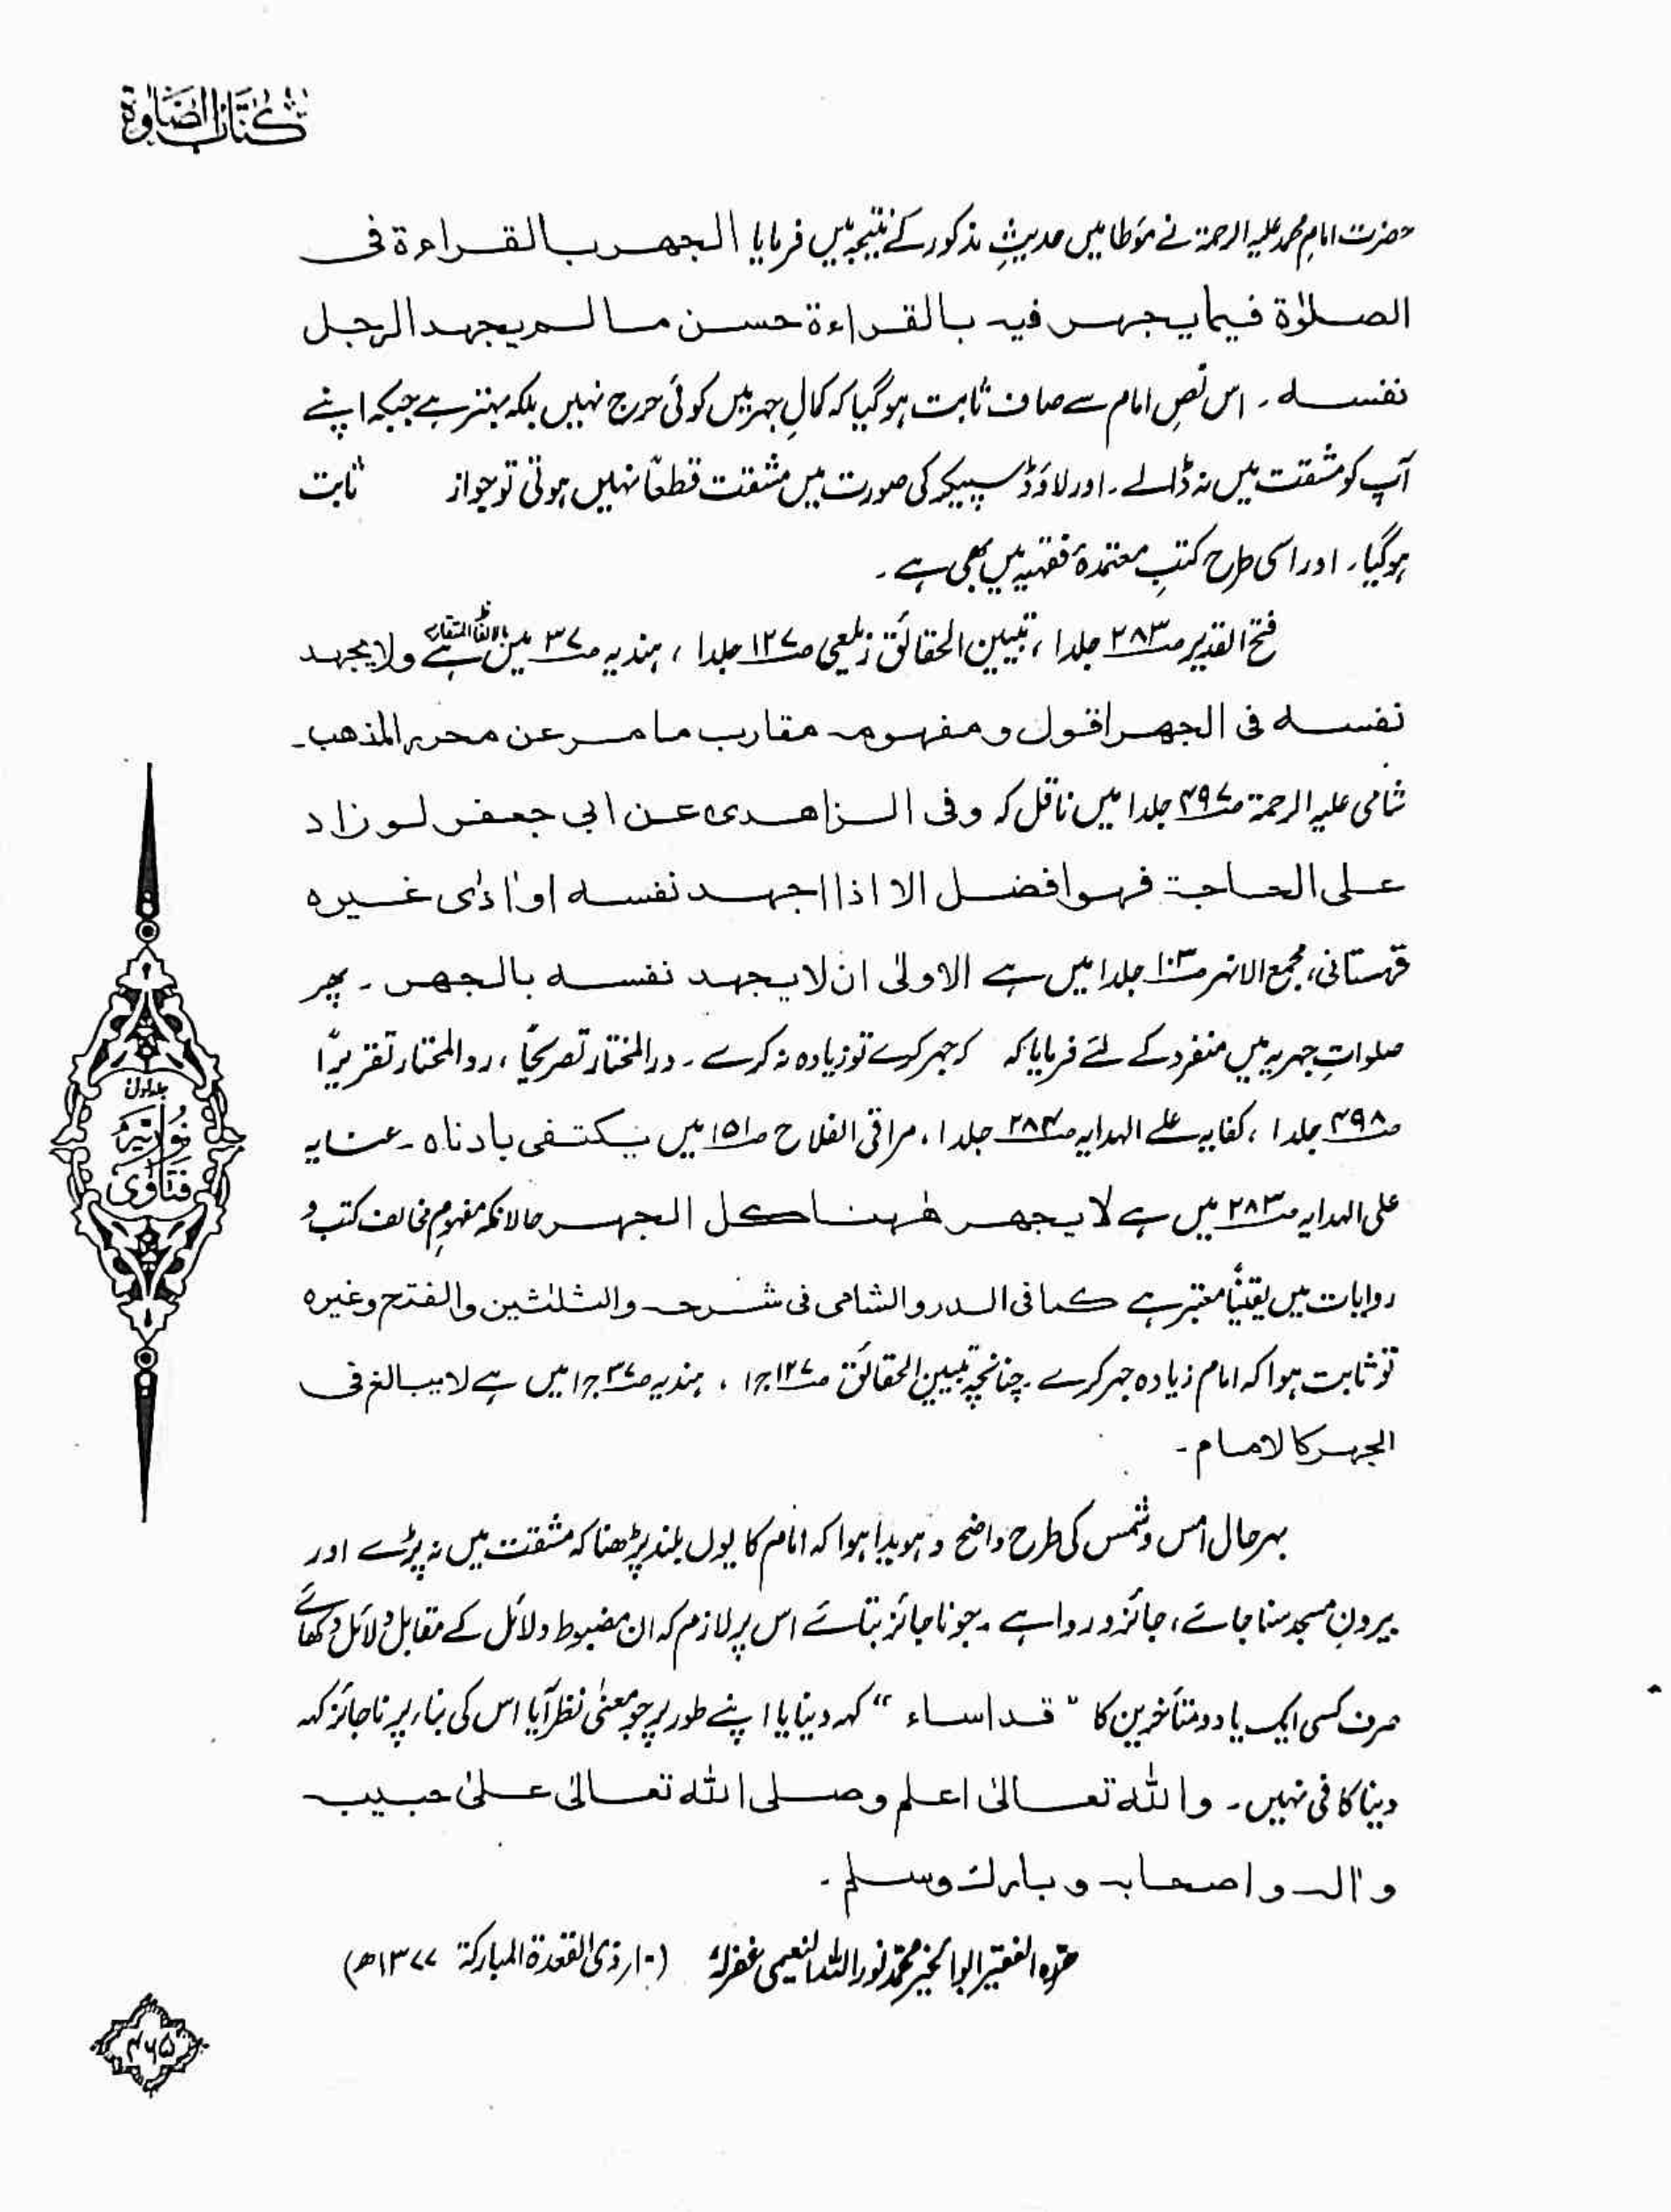 كتاب الصلوة
حضرت امام محمد علیہ الرحمۃ نے مؤطا میں حدیثِ مذکور کے نتیجہ میں فرمایا الجهر بالقراءة فی
الصلوٰة فیما یجهر فیه بالقراءة حسن ما لم یجهد الرجل
نفسه ۔ اس نصِ امام سے صاف ثابت ہوگیا کہ کمالِ جہر میں کوئی حرج نہیں بلکہ بہتر ہے جبکہ اپنے
آپ کو مشقت میں نہ ڈالے ۔ اور لاؤڈ سپیکر کی صورت میں مشقت قطعاً نہیں ہوتی تو جواز ثابت
ہوگیا ۔ اور اسی طرح کتبِ معتمدۂ فقہیہ میں بھی ہے ۔
فتح القدیر ص۲۸۳ جلد ۱ ، تبیین الحقائق زیلعی ص۱۲۷ جلد ۱ ، ہندیہ ص۳۷ میں بالفاظ متقاربہ ہے ولا یجهد
نفسه فی الجهر اقول و مفهومه مقارب ما مر عن محرر المذهب ۔
شامی علیہ الرحمۃ ص۴۹۷ جلد ۱ میں ناقل کہ وفی الزاهدی عن ابی جعفر لو زاد
علی الحاجة فهو افضل الا اذا اجهد نفسه او اٰذی غیره
قہستانی، مجمع الانہر ص۱۰۳ جلد ۱ میں ہے الاولیٰ ان لا یجهد نفسه بالجهر ۔ پھر
صلواتِ جہریہ میں منفرد کے لئے فرمایا کہ کہ جہر کرے تو زیادہ نہ کرے ۔ درالمختار تصریحًا ، ردالمختار تقریرًا
ص۴۹۸ جلد ۱ ، کفایہ علے الہدایہ ص۲۸۴ جلد ۱ ، مراقی الفلاح ص۱۵۱ میں یکتفی بادناه ۔ عنایہ
علی الہدایہ ص۲۸۳ میں ہے لا یجهر هٰهنا کل الجهر حالانکہ مفہومِ مخالف کتب و
روایات میں یقیناً معتبر ہے کما فی الدر والشامی فی شرحه والثلٰثین والفتح وغیرہ
تو ثابت ہوا کہ امام زیادہ جہر کرے ۔ چنانچہ تبیین الحقائق ص۱۲۷ ج۱ ، ہندیہ ص۳۷ ج۱ میں ہے لا یبالغ فی
الجهر کالامام ۔
بہرحال امس و شمس کی طرح واضح و ہویدا ہوا کہ امام کا یوں بلند پڑھنا کہ مشقت میں نہ پڑے اور
بیرونِ مسجد سنا جائے، جائز و روا ہے ۔ جو ناجائز بتائے اس پر لازم کہ ان مضبوط دلائل کے مقابل دلائل دکھائے
صرف کسی ایک یا دو متأخرین کا "قد اساء" کہہ دینا یا اپنے طور پر جو معنیٰ نظر آیا اس کی بناء پر ناجائز کہہ
دینا کافی نہیں ۔ واللہ تعالیٰ اعلم وصلی اللہ تعالیٰ علیٰ حبیبه
واٰله واصحابه وبارك وسلم ۔
حررہ الفقیر ابوالخیر محمد نور اللہ النعیمی غفرلہٗ (۱۰؍ ذی القعدۃ المبارکۃ ۱۳۷۷ھ)
جلد اول
نوریہ
فتاوی
۴۶۵